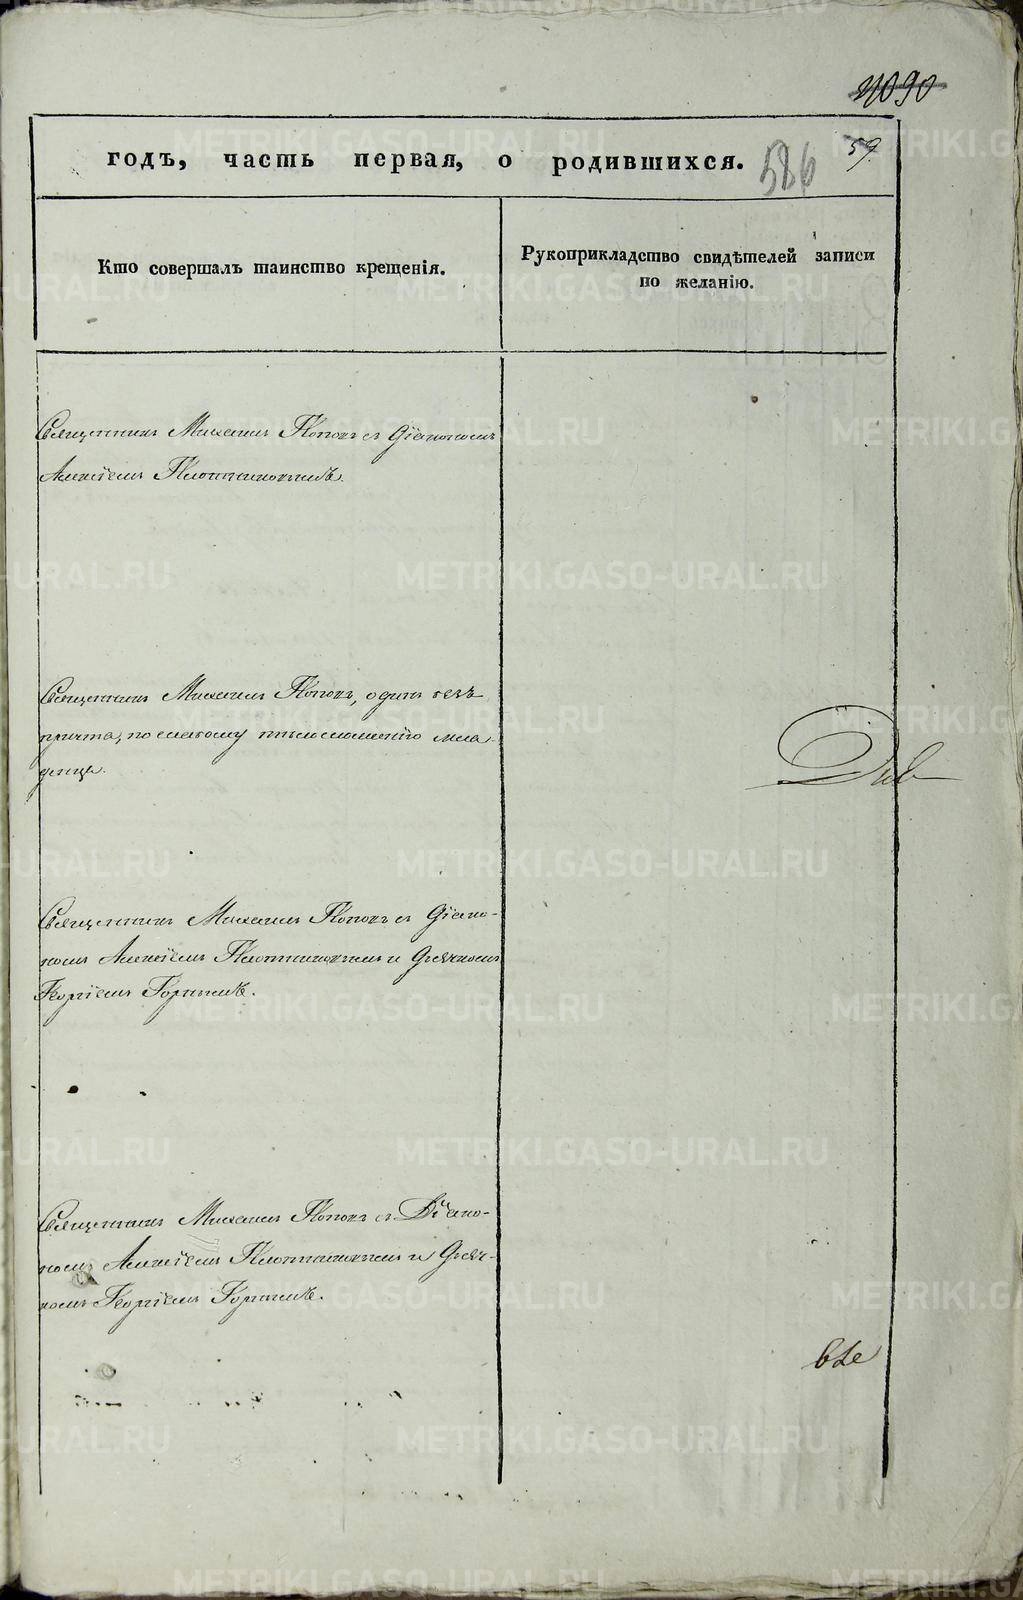 1090
годъ, часть первая, о родившихся.
586
59
Кто совершалъ таинство крещенія.
Рукоприкладство свидѣтелей записи
по желанію.
Священникъ Михаилъ Поповъ съ Діакономъ
Алексѣемъ Плотниковымъ.
Священникъ Михаилъ Поповъ, одинъ безъ
причта, по слабому тѣлосложенію мла-
денца.
Священникъ Михаилъ Поповъ съ Діако-
номъ Алексѣемъ Плотниковымъ и Дьячкомъ
Георгіемъ
Священникъ Михаилъ Поповъ съ Діако-
номъ Алексѣемъ Плотниковымъ и Дьяч-
комъ Георгіемъ
METRIKI.GASO-URAL.RU